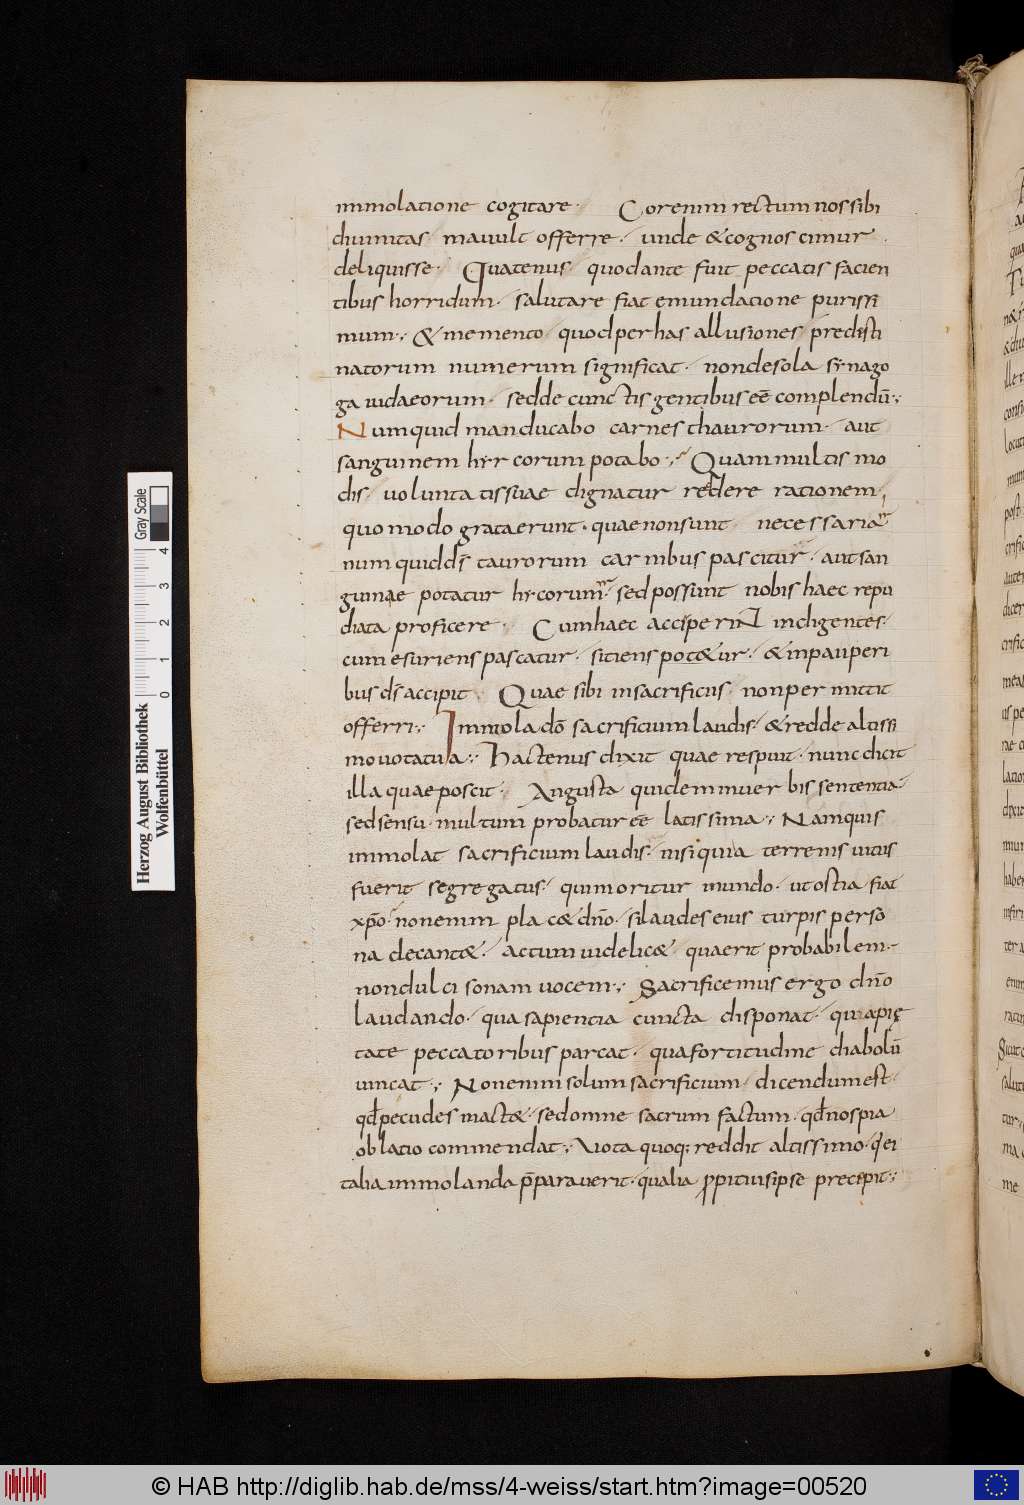 immolatione cogitare· Cor enim rectum nos sibi
diuinitas mauult offerre· unde & cognoscimur
deliquisse· Quatenus quod ante fuit peccatis facien
tibus horridum· salutare fiat emundatione purissi
mum; & memento quod per has allusiones predisti
natorum numerum significat· non de sola synago
ga iudaeorum· sed de cunctis gentibus eē complendū;
Numquid manducabo carnes thaurorum· aut
sanguinem hyrcorum potabo; Quam multis mo
dis uoluntatis suae dignatur reddere rationem·
quomodo grata erunt· quae non sunt necessaria
numquid d̄s taurorum carnibus pascitur· aut san
guinae potatur hyrcorum· sed possunt nobis haec repu
diata proficere· Cum haec acciperint indigentes·
cum esuriens pascatur· sitiens pot&ur· & in pauperi
bus d̄s accipit· Quae sibi in sacrificiis non permittit
offerri; Immola dō sacrificium laudis· & redde altissi
mo uota tua; Hactenus dixit quae respuit· nunc dicit
illa quae poscit· Angusta quidem in uerbis sententia
sed sensu multum probatur eē latissima; Nam quis
immolat sacrificium laudis· nisi quia terrenis uitiis
fuerit segregatus· qui moritur mundo· ut ostia fiat
xp̄o· non enim plac& dn̄o· si laudes eius turpis perso
na decant&· actum uidelic& quaerit probabilem·
non dulcisonam uocem; Sacrificemus ergo dn̄o
laudando· qua sapientia cuncta disponat· qua pię
tate peccatoribus parcat· qua fortitudine diabolū
uincat; Non enim solum sacrificium dicendum est·
qđ pecudes mact&· sed omne sacrum factum· qđ nos pia
oblatio commendat; Uota quoq; reddit altissimo· q̇ ei
talia immolanda p̄parauerit· qualia ꝓpitius ipse precepit;
Herzog August Bibliothek
Wolfenbüttel
0 1 2 3 4
Gray Scale
© HAB http://diglib.hab.de/mss/4-weiss/start.htm?image=00520